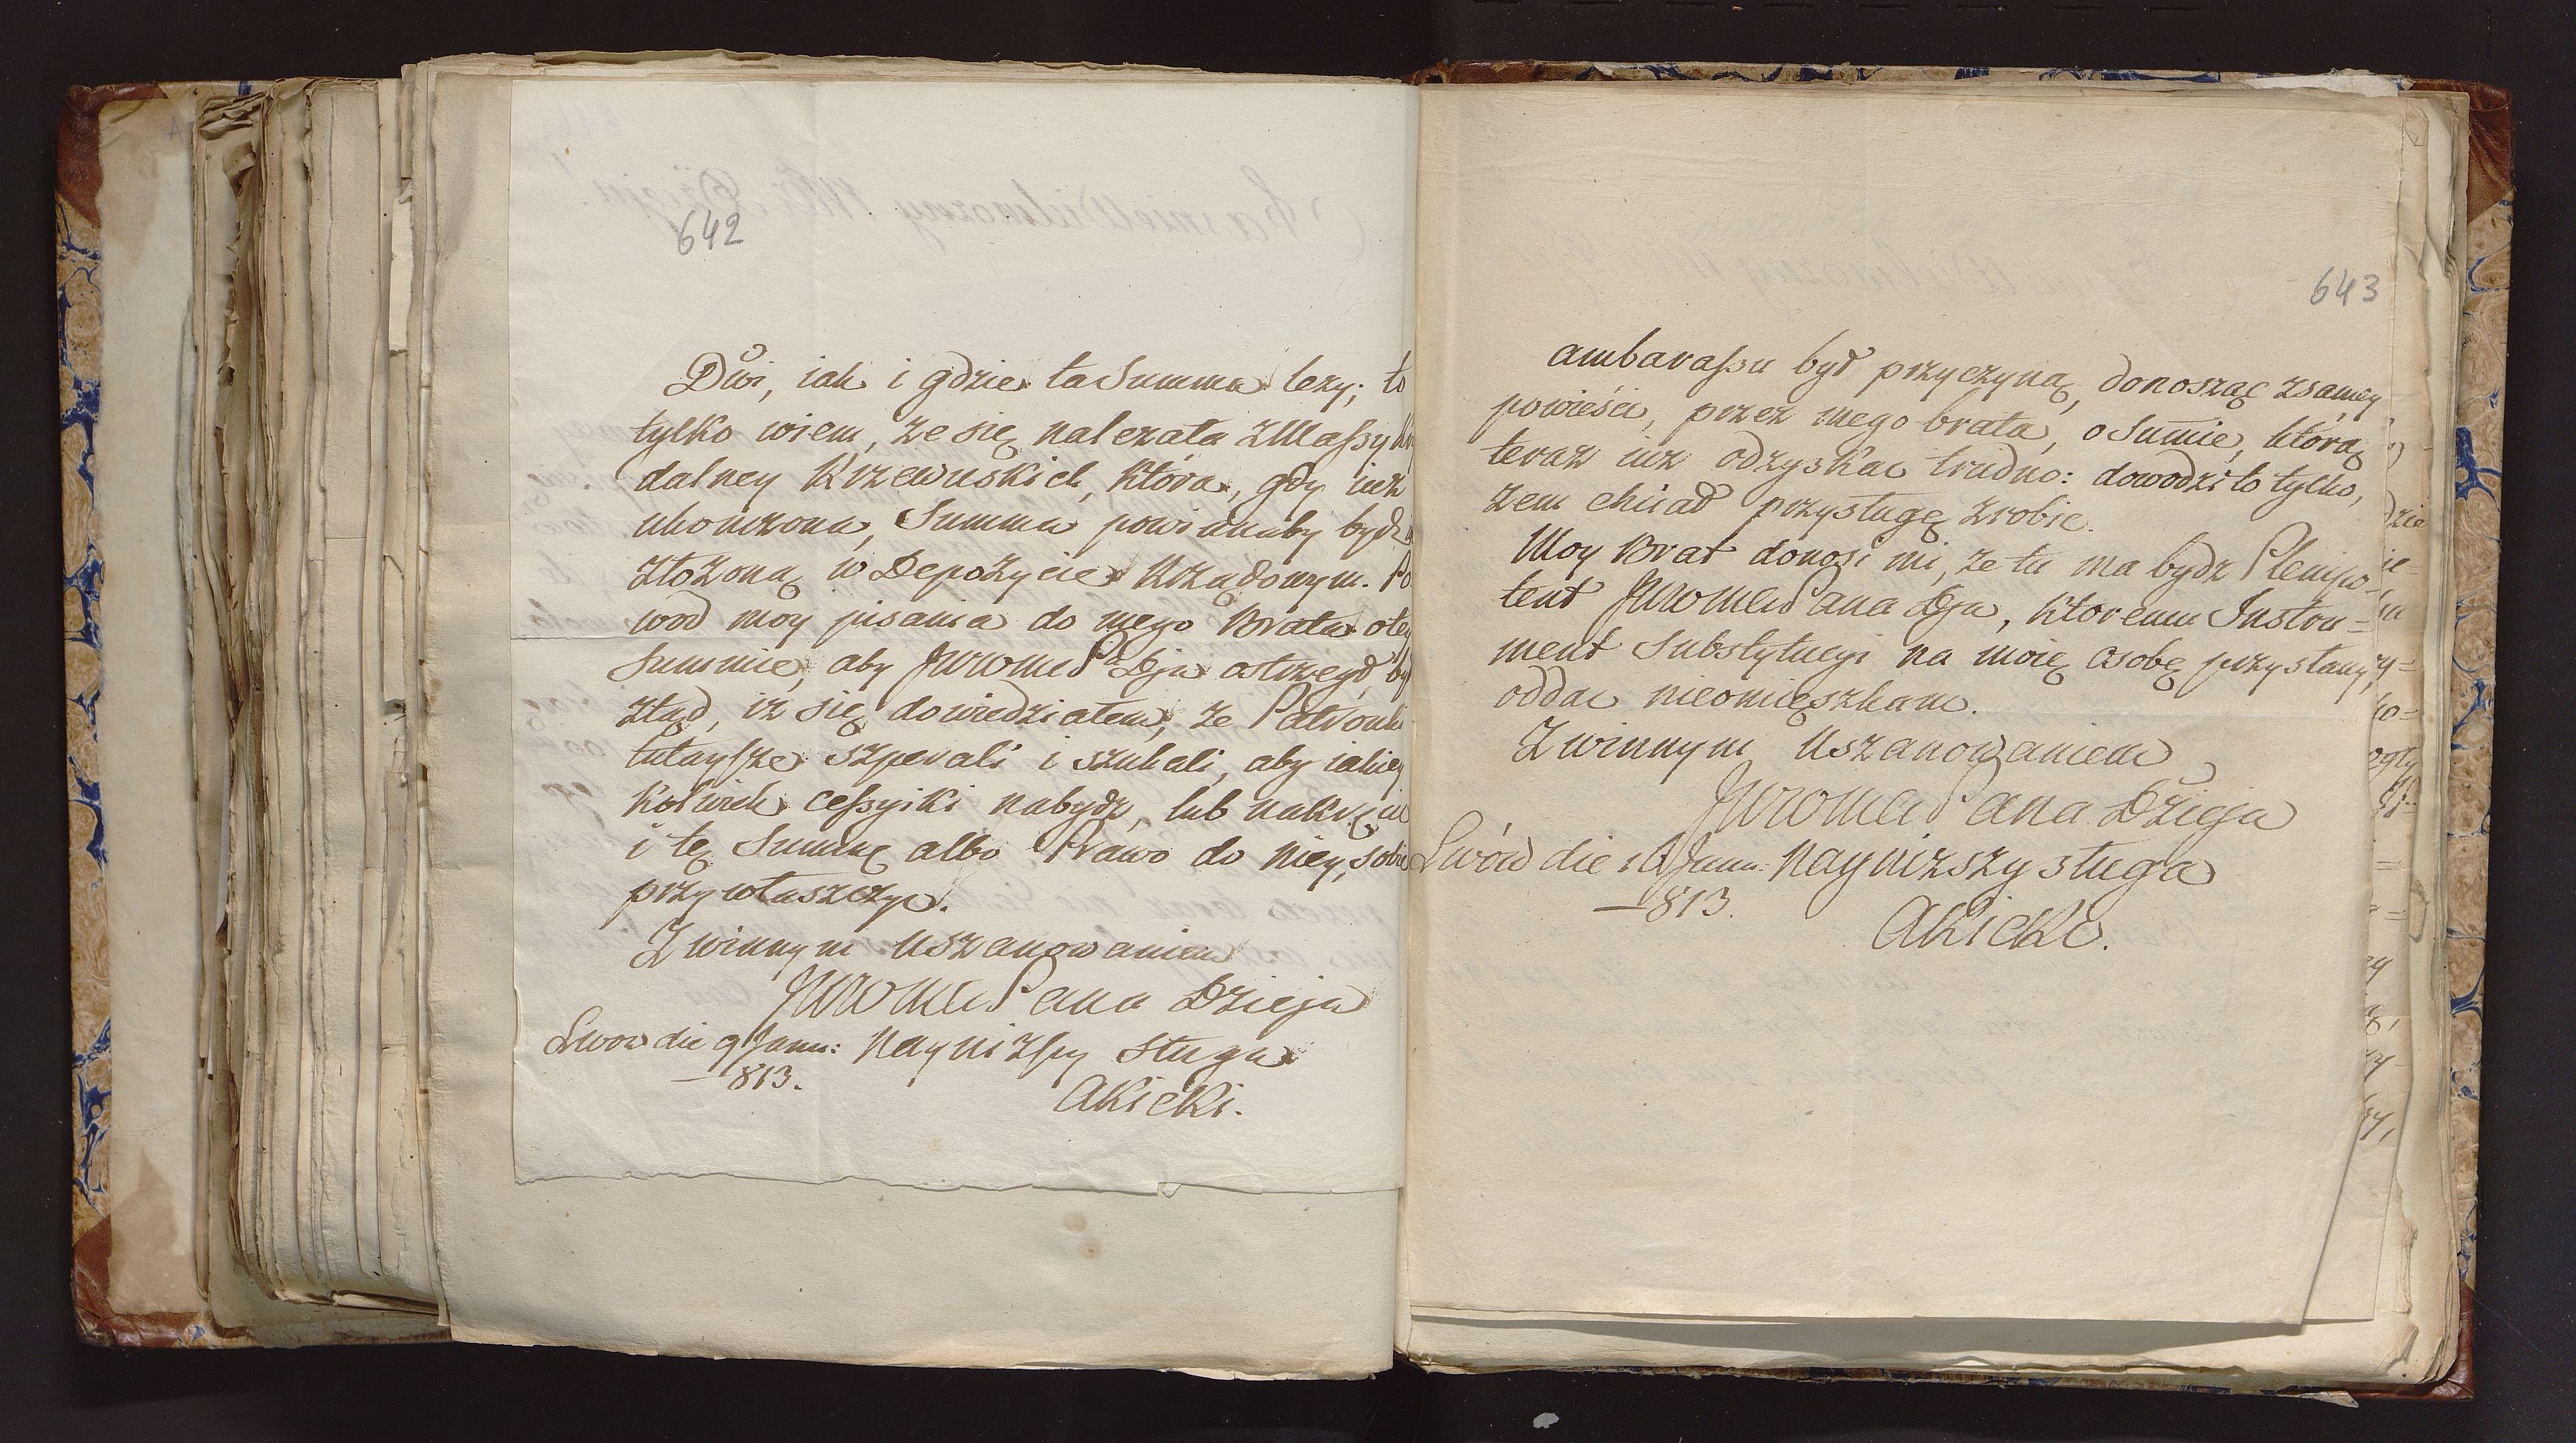 642
Dwi, iak i gdzie ta Summa leży; to
tylko wiem, że się należała z Massy
dalney Krzewuskich, która, gdy iuż
ukonczona, Summa powinnaby bydź
złożoną w Depozycie Urzędowym. Po
wod moy pisania do mego Brata o tey
Summie, aby JWWMci P Dzja ostrzegł, był
ztąd, iż się dowiedziałem, że Patronk
tutaysze szperali i szukali, aby iakiey
kolwiek cessyiki nabydź, lub nakręcić
i tę Summę albo Prawo do niey, sobie
przywłaszczyc.
Z winnym uszanowaniem
JWWMci Pana Dzieja
Lwow die 9 Janu: Nayniższy sługa
—813.
AKicki.
643
ambarassu był przyczyną, donosząc z samey
powieści, przez mego brata, o Sumie, którą
teraz iuż odzyskac trudno: dowodzi to tylko,
żem chciał przysługę zrobic.
Moy Brat donosi mi, że tu ma bydź Plenipo-
tent JWWMci Pana Dzja, ktoremu Instru=
ment Substytucyi na moię osobę przysłany,
oddac nieomięszkam.
Z winnym Uszanowaniem
JWWMci Pana Dzieja
Lwów die 16 Janu: Nayniższy sługa
—813.
AKicki.